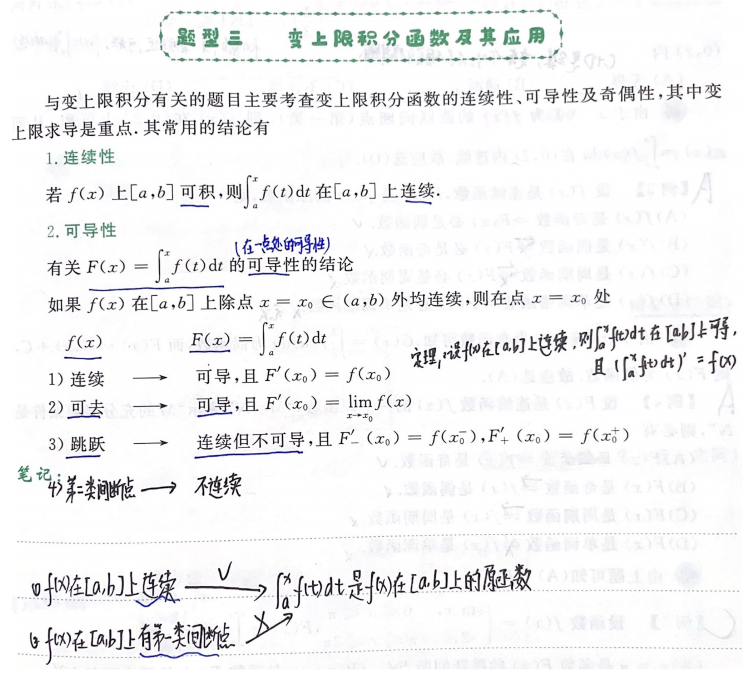 题型三 变上限积分函数及其应用
与变上限积分有关的题目主要考查变上限积分函数的连续性、可导性及奇偶性,其中变
上限求导是重点.其常用的结论有
1.连续性
若 f(x) 上[a,b] 可积,则∫ₐˣ f(t)dt 在[a,b] 上连续.
2.可导性
(在一点处的可导性)
有关 F(x) = ∫ₐˣ f(t)dt 的可导性的结论
如果 f(x) 在[a,b] 上除点 x = x₀ ∈ (a,b) 外均连续,则在点 x = x₀ 处
f(x) F(x) = ∫ₐˣ f(t)dt
定理:设f(x)在[a,b]上连续,则∫ₐˣ f(t)dt 在[a,b]上可导,
且 (∫ₐˣ f(t)dt)' = f(x)
1) 连续 → 可导,且 F'(x₀) = f(x₀)
2) 可去 → 可导,且 F'(x₀) = lim_{x→x₀} f(x)
3) 跳跃 → 连续但不可导,且 F'₋(x₀) = f(x₀⁻),F'₊(x₀) = f(x₀⁺)
笔记:
4) 第二类间断点 → 不连续
① f(x)在[a,b]上连续 √→ ∫ₐˣ f(t)dt 是f(x)在[a,b]上的原函数
② f(x)在[a,b]上有第一类间断点 ×↗